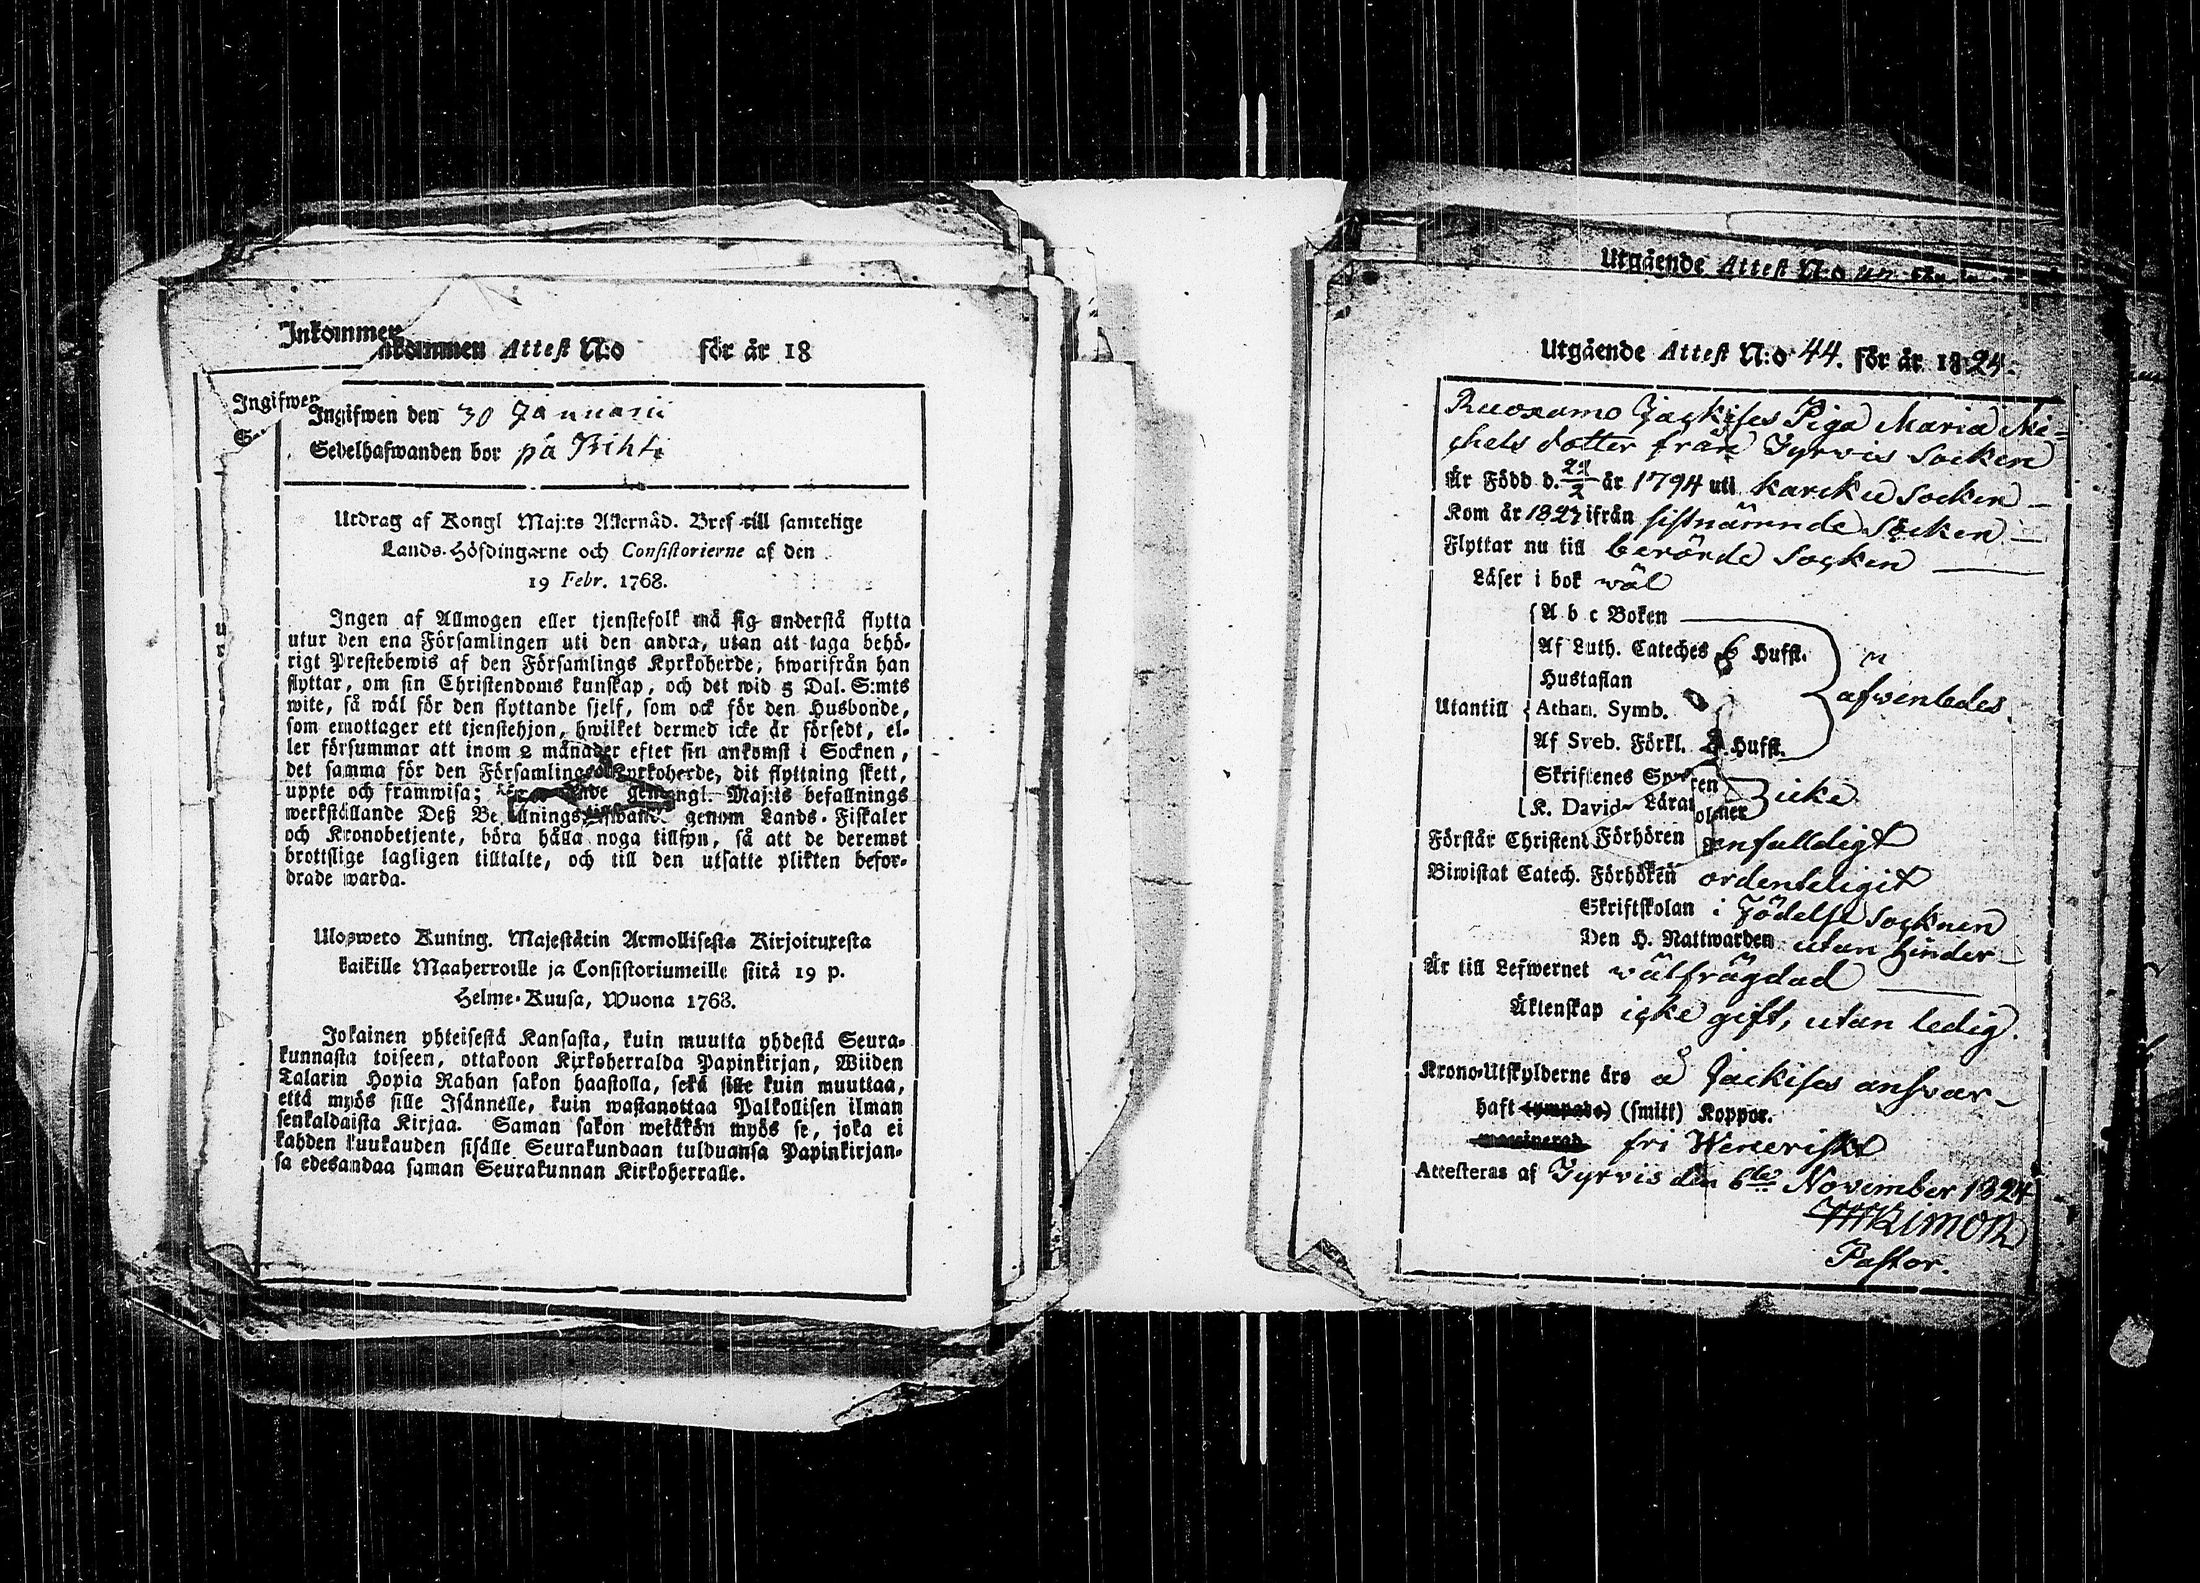 Inkommen
nkommen Attest N:o för år 18
Ingifwen
Ingifwen den 30 Januarii
Sedelhafwanden bor på
Utdrag af Kongl Maj:ts Allernåd. Bref till samtelige
Lands-Höfdingarne och Consistorierne af den
19 Febr. 1768.
Ingen af Allmogen eller tjenstefolk må sig understå flytta
utur den ena Församlingen uti den andra, utan att taga behö-
rigt Prestebewis af den Församlings Kyrkoherde, hwarifrån han
flyttar, om sin Christendoms kunskap, och det wid 5 Dal. S:mts
wite, så wäl för den flyttande sjelf, som ock för den Husbonde,
som emottager ett tjenstehjon, hwilket dermed icke är försedt, el-
ler försummar att inom 2 månader efter sin ankomst i Socknen,
det samma för den Församlings Kyrkoherde, dit flyttning skett,
uppte och framwisa; ngl. Maj:ts befallnings
werkställande Deß genom Lands-Fiskaler
och Kronobetjente, böra hålla noga tillsyn, så att de deremot
brottslige lagligen tilltalte, och till den utsatte plikten befor-
drade warda.
Ulosweto Kuning. Majestätin Armollisesta Kirjoituxesta
kaikille Maaherroille ja Consistoriumeille siitä 19 p.
Helme-Kuusa, Wuona 1768.
Jokainen yhteisestä Kansasta, kuin muutta yhdestä Seura-
kunnasta toiseen, ottakoon Kirkoherralda Papinkirjan, Wiiden
Talarin Hopia Rahan sakon haastolla, sekä sille kuin muuttaa,
että myös sille Isännelle, kuin wastanottaa Palkollisen ilman
senkaldaista Kirjaa. Saman sakon wetäkön myös se, joka ei
kahden kuukauden sisälle Seurakundaan tulduansa Papinkirjan-
sa edesandaa saman Seurakunnan Kirkoherralle.
Utgående Attest N:o
Utgående Attest N:o 44. för år 1824.
Jackises Piga Maria Mi-
chels dotter från Tyrvis Socken
Är Född d. år 1794 uti Karcku Socken
Kom år ifrån sistnämnde Socken
Flyttar nu till berörde Socken
Läser i bok wäl
A b c Boken
Af Luth. Cateches 6 Hufst.
Hustaflan
Utantill Athan. Symb. afwenledes.
Af Sveb. Förkl. Hufst.
Skriftenes
K. Davids icke
Förstår Christend Förhören enfalldigt
Biwistat Catech. Förhören ordenteligit
Skriftskolan i Födelse Socknen
Den H. Nattwarden utan hinder
Är till Lefwernet wälfrägdad
Äktenskap icke gift, utan ledig.
Krono-Utskylderne äro å Jackises answar
haft (smitt) Koppor.
fri Weneriskt
Attesteras af Tyrvis den 6te November 1824
Pastor.